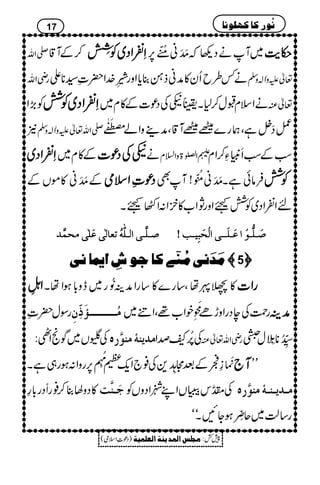 نُور کا کھلونا
17
حکایت میں آپ نے دیکھا کہ مَدَنی مُنّے پر اِنفِرادی کوشش کر کے آقا صلی اللہ
تعالیٰ علیہ والہٖ وسلم نے کس طرح اُن کا مدنی ذہن بنایا اور شیرِ خدا حضرتِ سیدنا علی رضی اللہ
تعالیٰ عنہ نے اسلام قبول کر لیا۔ یقیناً نیکی کی دعوت کے کام میں اِنفِرادی کوشش کو بڑا
عمل دَخل ہے، ہمارے میٹھے میٹھے آقا، مدینے والے مصطَفٰے صلی اللہ تعالیٰ علیہ والہٖ وسلم نیز
سب کے سب انبیاءِ کرام علیہم الصلوۃ والسلام نے نیکی کی دعوت کے کام میں اِنفِرادی
کوشش فرمائی ہے۔ مَدَنی مُنّو! آپ بھی دعوتِ اسلامی کے مَدَنی کاموں کے
لئے انفرادی کوشش کیجئے اور ثواب کا خزانہ اکٹھا کیجئے۔
صَلُّوا عَلَی الْحَبِیب! صلَّی اللہُ تعالٰی عَلٰی محمَّد
﴿5﴾ مَدَنی مُنّے کا جوشِ ایمانی
رات کا پچھلا پہر تھا، سارے کا سارا مدینہ نور میں ڈوبا ہوا تھا۔ اہلِ
مدینہ رحمت کی چادر اوڑھے محوِ خواب تھے، اتنے میں مُؤَذِّنِ رسول حضرتِ
سیِّدُنا بلال حبشی رضی اللہ تعالیٰ عنہ کی پُر کیف صدا مدینۂ منوَّرہ کی گلیوں میں گونج اٹھی:
’’آج نَمازِ فجر کے بعد مجاہدین کی فوج ایک عظیم مُہِم پر روانہ ہو رہی ہے۔
مدینۂ منوَّرہ کی مقدّس بیبیاں اپنے شہزادوں کو جنَّت کا دولہا بنا کر فوراً دربارِ
رسالت میں حاضِر ہو جائیں۔‘‘
پیش کش: مجلس المدینة العلمیة (دعوتِ اسلامی)